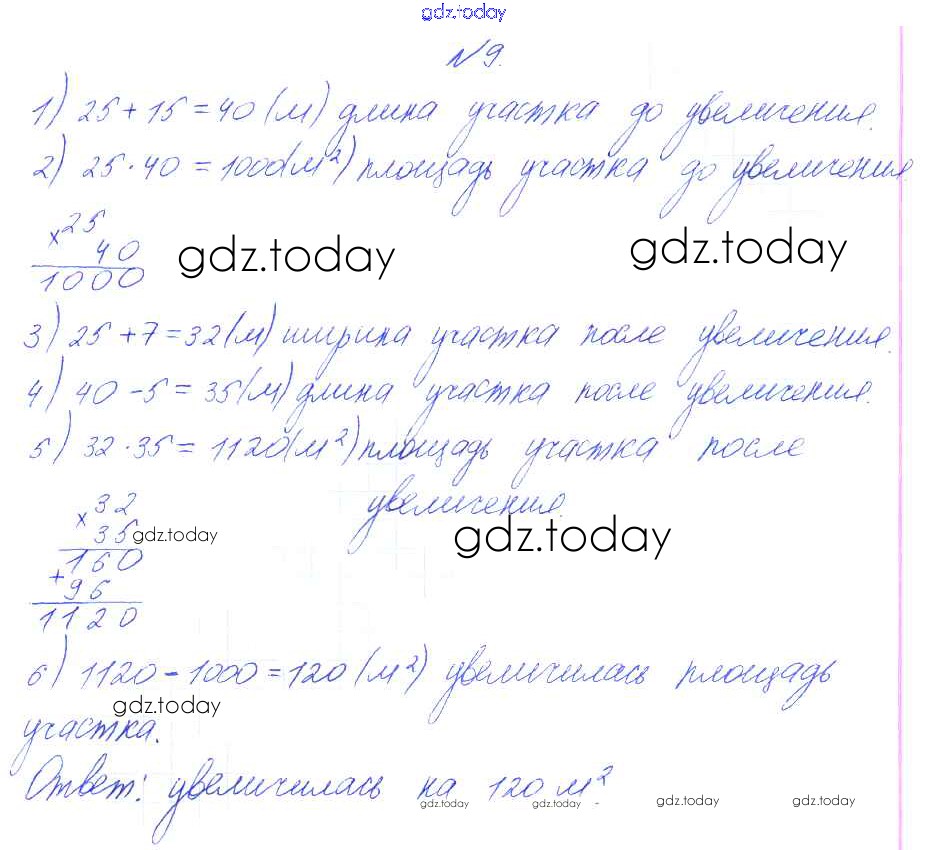 gdz.today
№9.
1) 25 + 15 = 40 (м) длина участка до увеличения.
2) 25 · 40 = 1000 (м²) площадь участка до увеличения.
× 25
40
1000
gdz.today gdz.today
3) 25 + 7 = 32 (м) ширина участка после увеличения.
4) 40 - 5 = 35 (м) длина участка после увеличения.
5) 32 · 35 = 1120 (м²) площадь участка после
увеличения.
× 32
35
gdz.today gdz.today
160
+ 96
1120
6) 1120 - 1000 = 120 (м²) увеличилась площадь
gdz.today
участка.
Ответ: увеличилась на 120 м²
gdz.today gdz.today gdz.today gdz.today